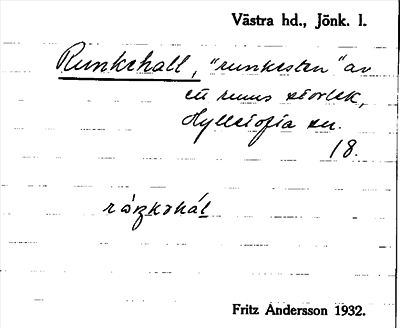 Västra hd., Jönk. l.
Runkehall, "runkesten" av
ett rums storlek,
Hylletofta sn.
18.
Fritz Andersson 1932.